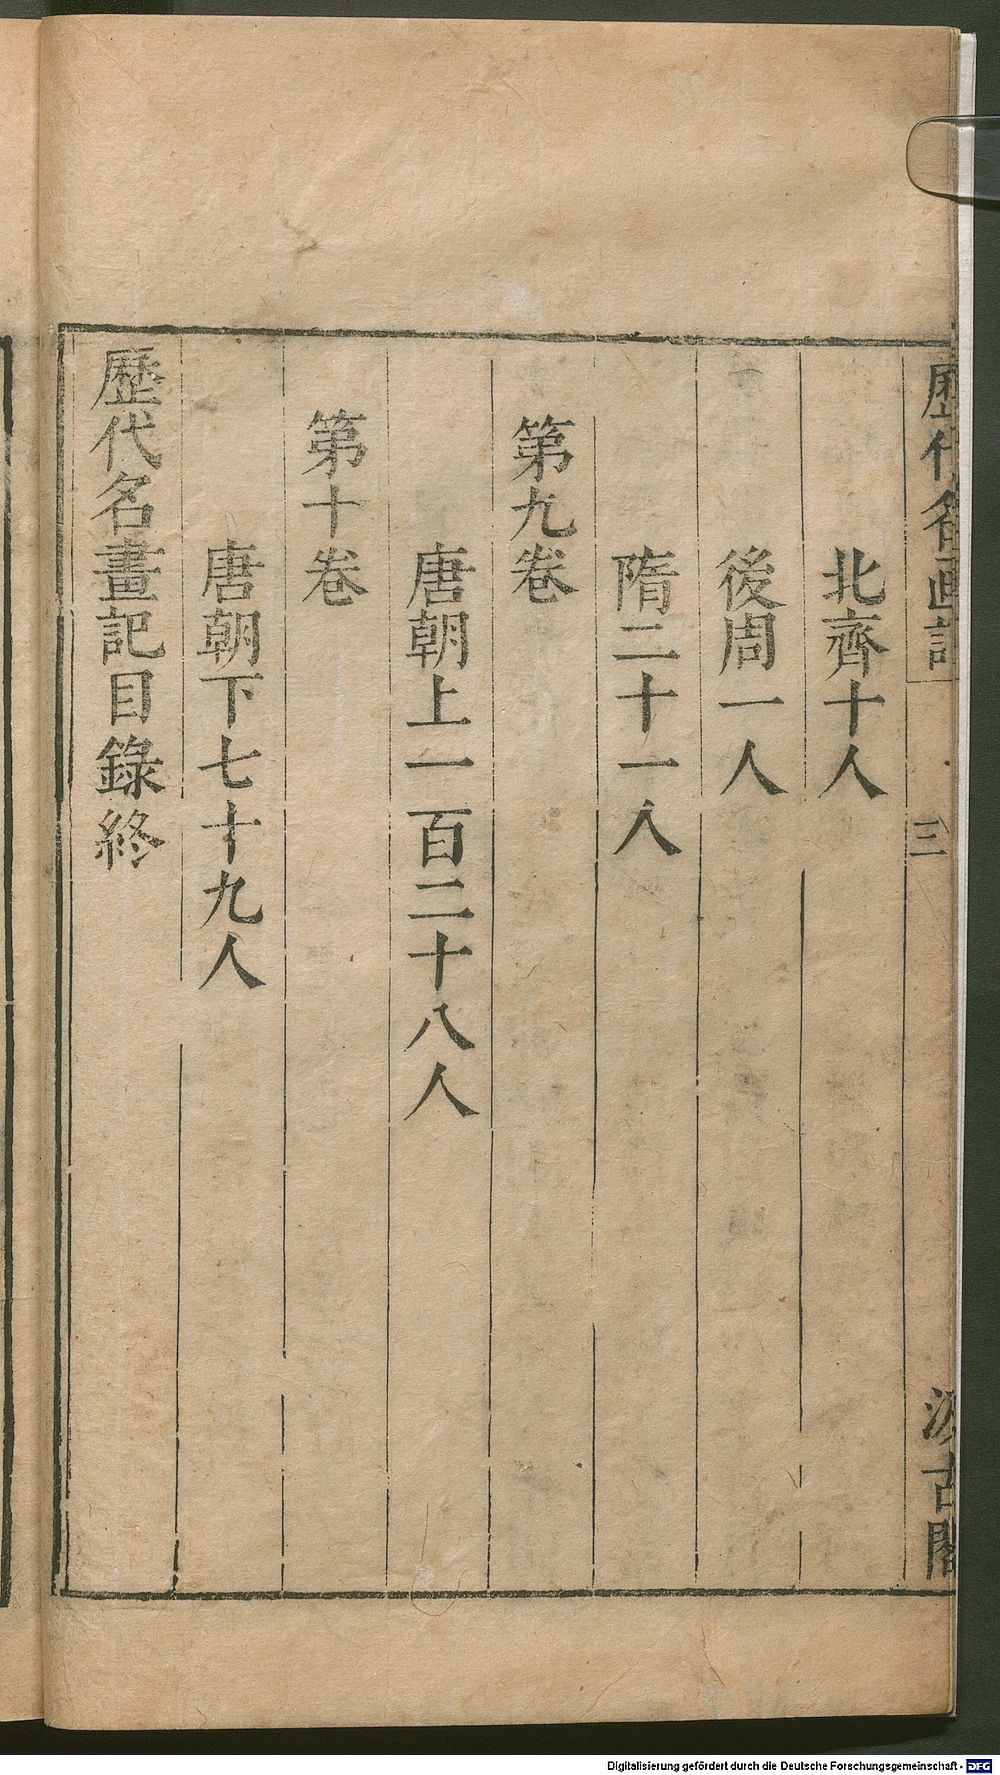 歷代名畫記
三
汲古閣
北齊十人
後周一人
隋二十一人
第九卷
唐朝上一百二十八人
第十卷
唐朝下七十九人
歷代名畫記目錄終
Digitalisierung gefördert durch die Deutsche Forschungsgemeinschaft - DFG